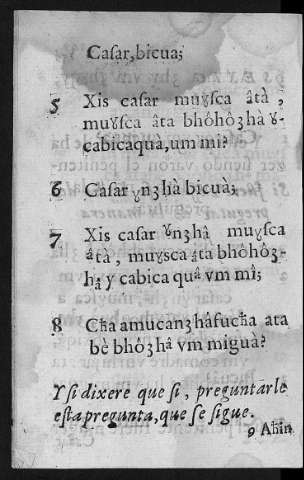 Casar, bicua;
5 Xis casar muȣsca âtà,
muȣsca âta bhôhôʒhâ ȣ-
cabicaquà, um mi?
6 Casar ȣnʒhà bicuà;
7 Xis casar ȣnʒhâ muȣsca
âtà, muȣsca âta bhôhôʒ-
hâ y cabica quâ vm mi;
8 Cħa amucanʒhâfucħa ata
bè bhôʒhâ vm miguà?
Y si dixere que si, preguntarle
esta pregunta, que se sigue.
9 Aħin